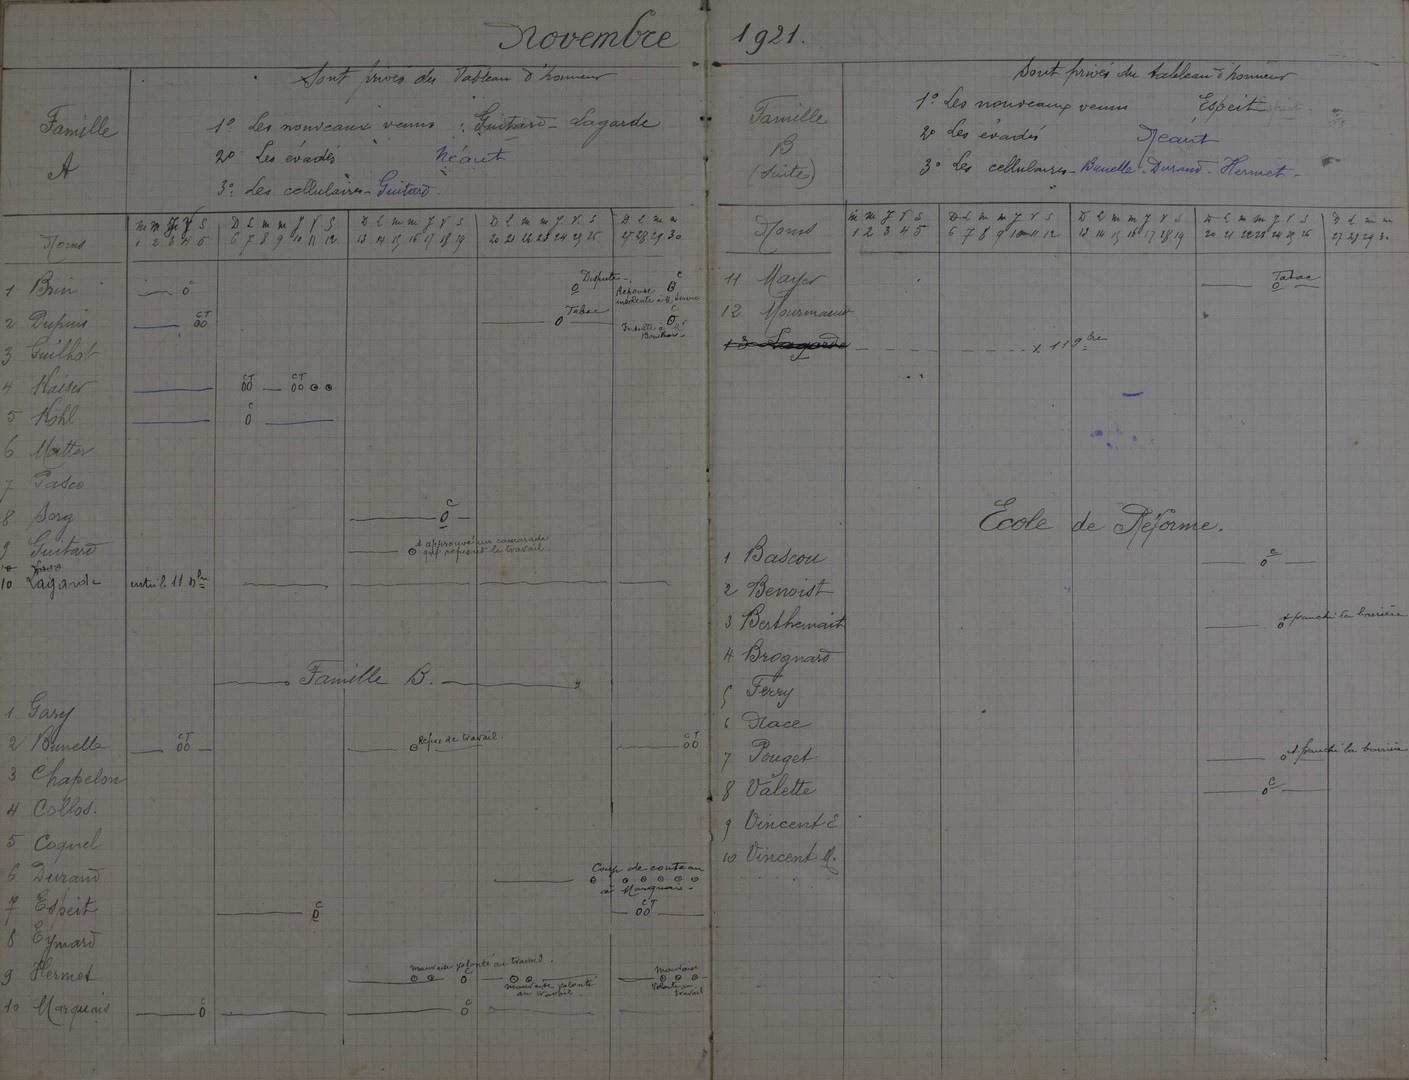 Novembre 1921.
Sont privés du Tableau d'honneur
Famille A
1° Les nouveaux venus : Guitard - Lagarde
2° Les évadés Néant
3° Les cellulaires - Guitard
Noms
M M J V S D L M M J V S D L M M J V S D L M M J V S D L M M
1 2 3 4 5 6 7 8 9 10 11 12 13 14 15 16 17 18 19 20 21 22 23 24 25 26 27 28 29 30
1 Brin C Dispute C
Réponse insolente à M.
2 Dupuis CT Tabac C
Insulte à Mr
3 Guilhot
4 Kaiser CT CT
5 Kohl C
6 Matter
7 Pasco
8 Sorg C
9 Guitard A approuvé un camarade
qui refusait le travail
10 Lagarde entré le 11 9bre
Famille B.
1 Gary
2 Brunelle CT Refus de travail. CT
3 Chapelon
4 Collos.
5 Coquel
6 Durand Coup de couteau
à Marquais -
7 Espeit C CT
8 Eymard
9 Hermet mauvaise volonté au travail.
mauvaise volonté
au travail
mauvaise
volonté au
travail
10 Marquais C C
Sont privés du tableau d'honneur
Famille B (Suite)
1° Les nouveaux venus Espeit
2° Les évadés Néant
3° Les cellulaires - Brunelle - Durand - Hermet -
Noms
M M J V S D L M M J V S D L M M J V S D L M M J V S D L M M
1 2 3 4 5 6 7 8 9 10 11 12 13 14 15 16 17 18 19 20 21 22 23 24 25 26 27 28 29 30
11 Mayer Tabac
12 Mourmaux
13 Lagarde x 11 9bre
Ecole de Réforme.
1 Bascou C
2 Benoist
3 Berthemait A franchi la barrière
4 Brognard
5 Ferry
6 Nace
7 Pouget A franchi la barrière
8 Valette C
9 Vincent E
10 Vincent M.